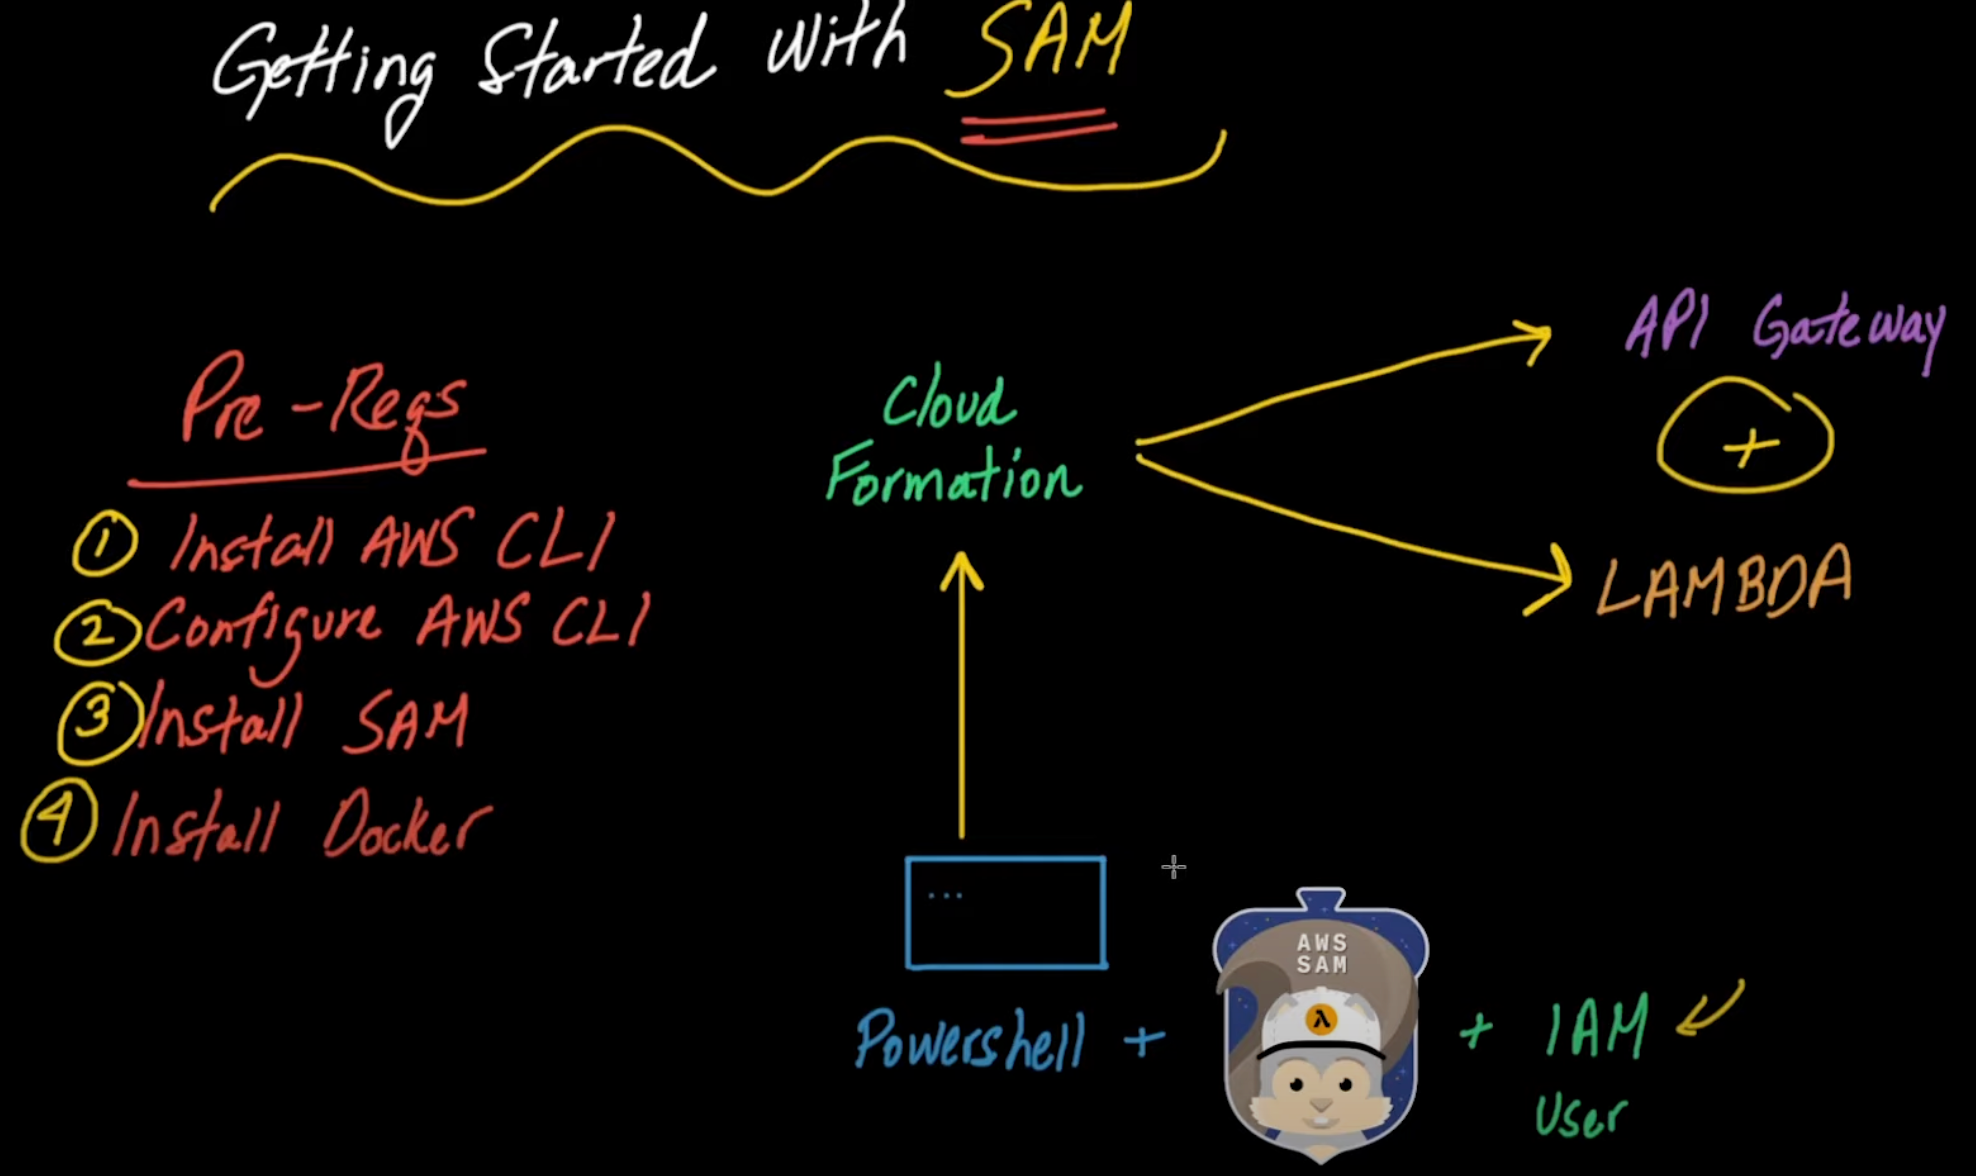 Getting Started With SAM
Pre-Reqs
1 Install AWS CLI
2 Configure AWS CLI
3 Install SAM
4 Install Docker
Cloud
Formation
API Gateway
+
LAMBDA
...
AWS
SAM
λ
Powershell + + IAM
User